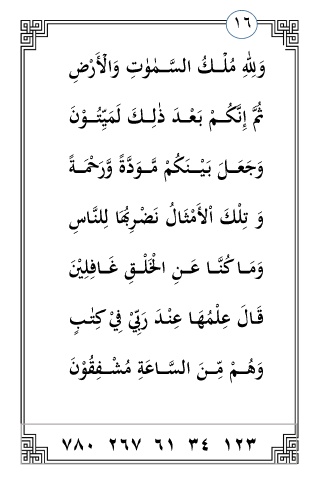 ١٦
وَلِلّٰهِ مُلْـكُ السَّـمٰوٰتِ وَالْأَرْضِ
ثُمَّ إِنَّكُـمْ بَعْـدَ ذٰلِـكَ لَمَيِّتُـوْنَ
وَجَعَـلَ بَيْـنَكُمْ مَّـوَدَّةً وَّرَحْمَـةً
وَ تِلْكَ الْأَمْثَالُ نَضْرِبُهَا لِلنَّاسِ
وَمَـا كُنَّـا عَـنِ الْخَلْـقِ غَـافِلِيْنَ
قَـالَ عِلْمُهَـا عِنْـدَ رَبِّيْ فِيْ كِتٰـبٍ
وَهُـمْ مِّـنَ السَّـاعَةِ مُشْـفِقُوْنَ
١٢٣ ٣٤ ٦١ ٢٦٧ ٧٨٠